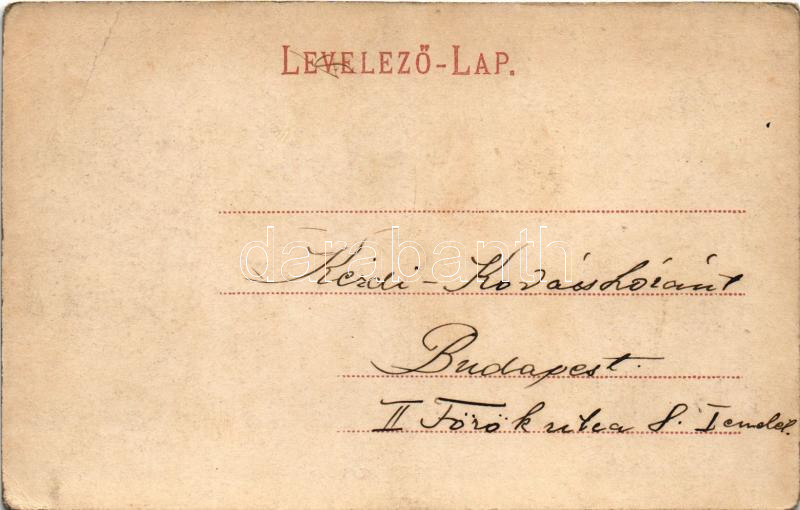 LEVELEZŐ-LAP.
darabanth
Kézdi-Kovács Lóránt
Budapest.
II Török utca 8. I emelet.